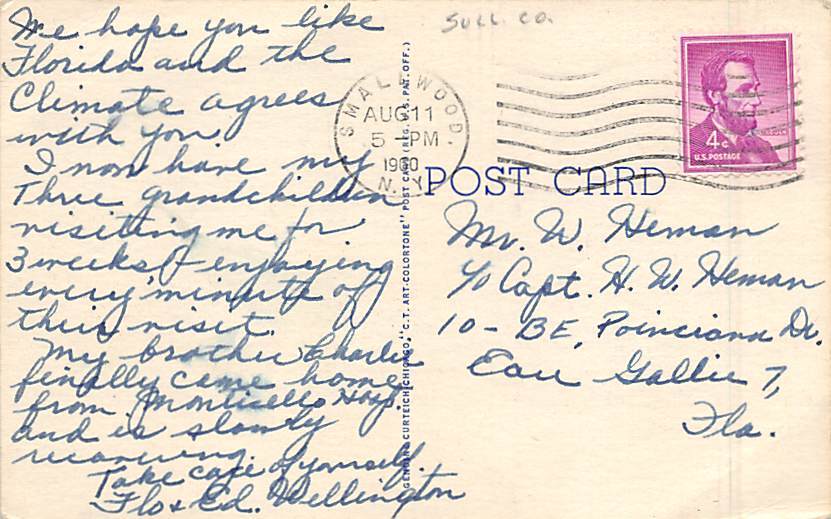 We hope you like
Florida and the
Climate agrees
with you
I now have my
three grandchildren
visiting me for
3 weeks & enjoying
every minute of
their visit.
My brother Charlie
finally came home
from Monticello Hosp.
and is slowly
recovering.
Take care of yourself.
Flo & Ed. Wellington
SULL. CO.
SMALLWOOD
AUG 11
5 - PM
1960
N.Y.
4¢
U.S. POSTAGE
LINCOLN
POST CARD
GENUINE CURTEICH-CHICAGO "C.T. ART-COLORTONE" POST CARD (REG. U.S. PAT. OFF.)
Mr. W. Heman
c/o Capt. H. W. Heman
10 - BE, Poinciana Dr.
Eau Gallie 7,
Fla.